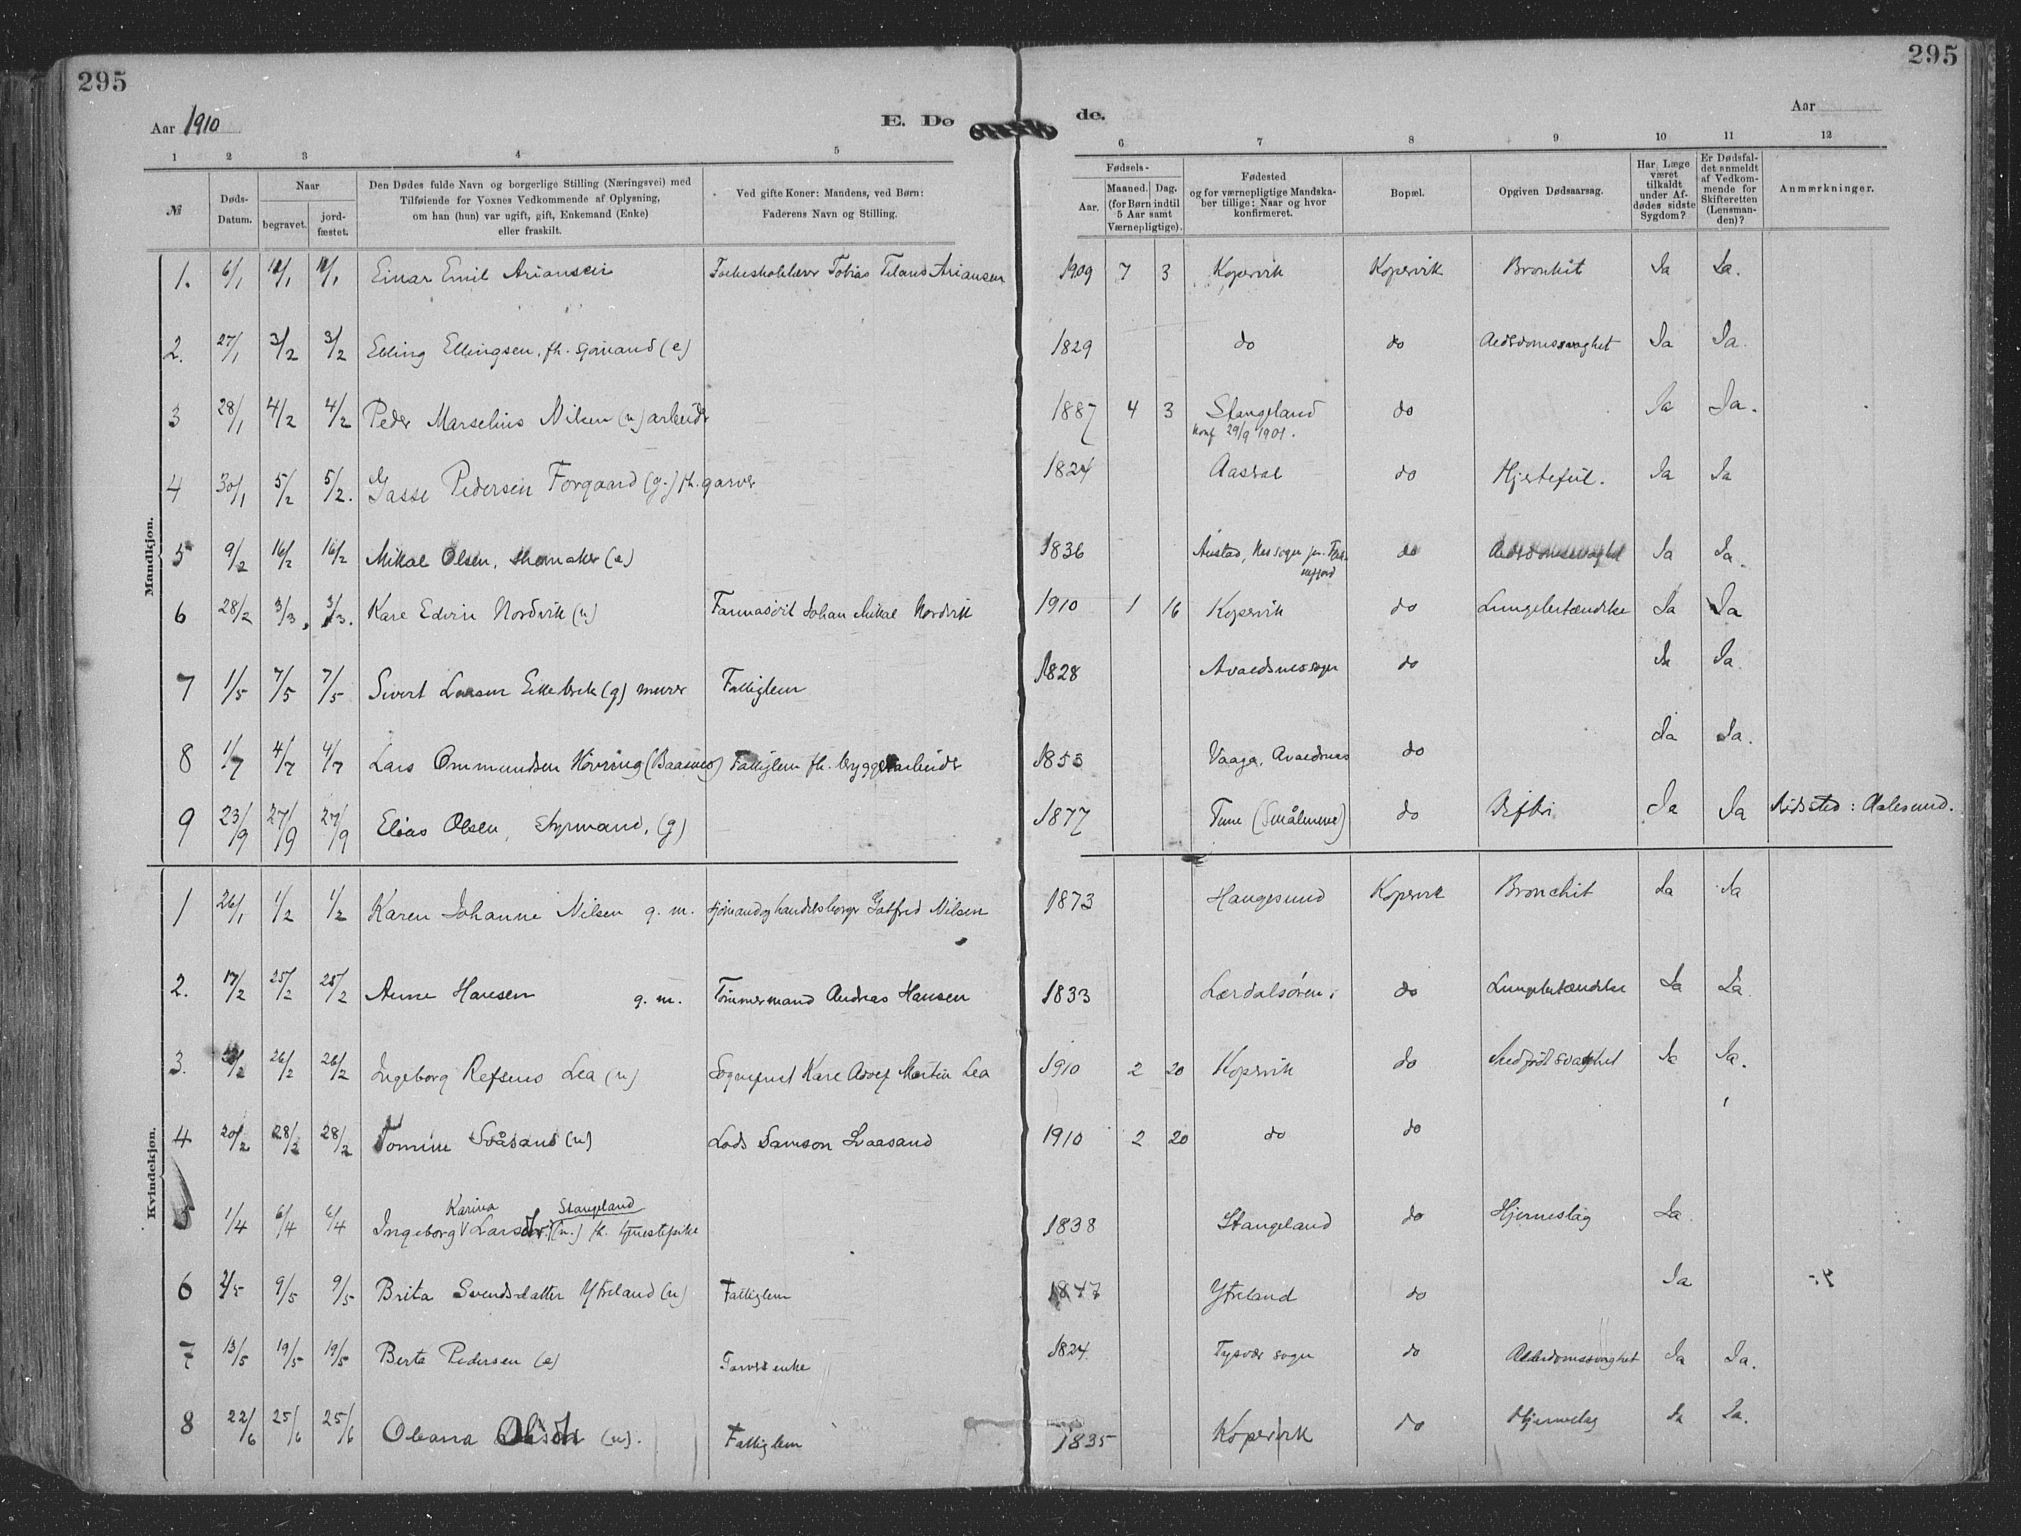 295
295
Aar 1910
E. Dø
de.
Aar
1 2 3 4 5 6 7 8 9 10 11 12
№
Døds-Datum.
Naar
begravet.
jord-fæstet.
Den Dødes fulde Navn og borgerlige Stilling (Næringsvei) med
Tilføiende for Voxnes Vedkommende af Oplysning,
om han (hun) var ugift, gift, Enkemand (Enke)
eller fraskilt.
Ved gifte Koner: Mandens, ved Børn:
Faderens Navn og Stilling.
Fødsels-
Aar.
Maaned. Dag.
(for Børn indtil
5 Aar samt
Værnepligtige).
Fødested
og for værnepligtige Mandska-
ber tillige: Naar og hvor
konfirmeret.
Bopæl.
Opgiven Dødsaarsag.
Har Læge
været
tilkaldt
under Af-
dødes sidste
Sygdom?
Er Dødsfal-
det anmeldt
af Vedkom-
mende for
Skifteretten
(Lensman-
den)?
Anmærkninger.
Mandkjøn.
1. 6/1 Einar Emil Ariansen Tobias Ariansen 1909 7 3 Kopervik Kopervik Bronkit Ja Ja.
2. 27/1 3/2 3/2 Elling Ellingsen, fh. sjømand (e) 1829 do do Alderdomssvaghet Ja Ja.
3 28/1 4/2 4/2 Peder Marselius Nilsen (u) arbeider 1887 4 3 Stangeland do Ja Ja.
konf 29/9 1901.
4 30/1 5/2 5/2. Lasse Pedersen Forgaard (g.) fh. garver 1824 Aasdal do Hjertefeil. Ja Ja
5 9/2 16/2 16/2 Mikal Olsen, skomaker (e) 1836 do Alderdomssvaghet Ja Ja.
6 28/2 3/3. 3/3. Kare Edvin Nordvik (u) Johan Mikal Nordvik 1910 1 16 Kopervik do Lungebetændelse Ja Ja
7 1/5 7/5 7/5 Sivert Larsen Eikebrek (g) murer Fattiglem 1828 Avaldsnes sogn do Ja Ja.
8 1/7 4/7 4/7 Lars Ommundsen Høvring Fattiglem fh. bryggearbeider 1853 Vaaga, Avaldsnes do Ja Ja.
9 23/9 27/9 27/9 Elias Olsen, styrmand, (g) 1877 Tune (Smålenene) do Difteri Ja Ja Dødsted: Aalesund.
Kvindekjøn.
1 26/1 1/2 1/2 Karen Johanne Nilsen g. m. sjømand og handelsborger Gotfred Nilsen 1873 Haugesund Kopervik Bronchit Ja Ja
2. 17/2 25/2 25/2 Anne Hansen g. m. Tømmermand Andreas Hansen 1833 Lærdalsøren. do Lungebetændelse Ja Ja.
3. 26/2 26/2 Ingeborg Refsnes Lea (u) Sogneprest Karl Adolf Martin Lea 1910 2 20 Kopervik do Medfødt svaghet Ja Ja.
4 20/2 28/2 28/2 Tomine Svåsand (u) Lods Samson Svaasand 1910 2 20 do do
Karina Stangeland
5 1/4 6/4 6/4 Ingeborg Larsdtr. (u.) fh. tjenestepike 1838 Stangeland do Hjerneslag Ja.
6 2/5 9/5 9/5 Brita Svendsdatter Ytreland (u) Fattiglem 1847 Ytreland do Ja
7 13/5 19/5 19/5 Berta Pedersen (e) Garverenke 1824. Tysvær sogn do Alderdomssvaghet Ja Ja.
8 22/6 25/6 25/6 Oleana Olsen (u). Fattiglem 1835 Kopervik do Hjerneslag Ja Ja.